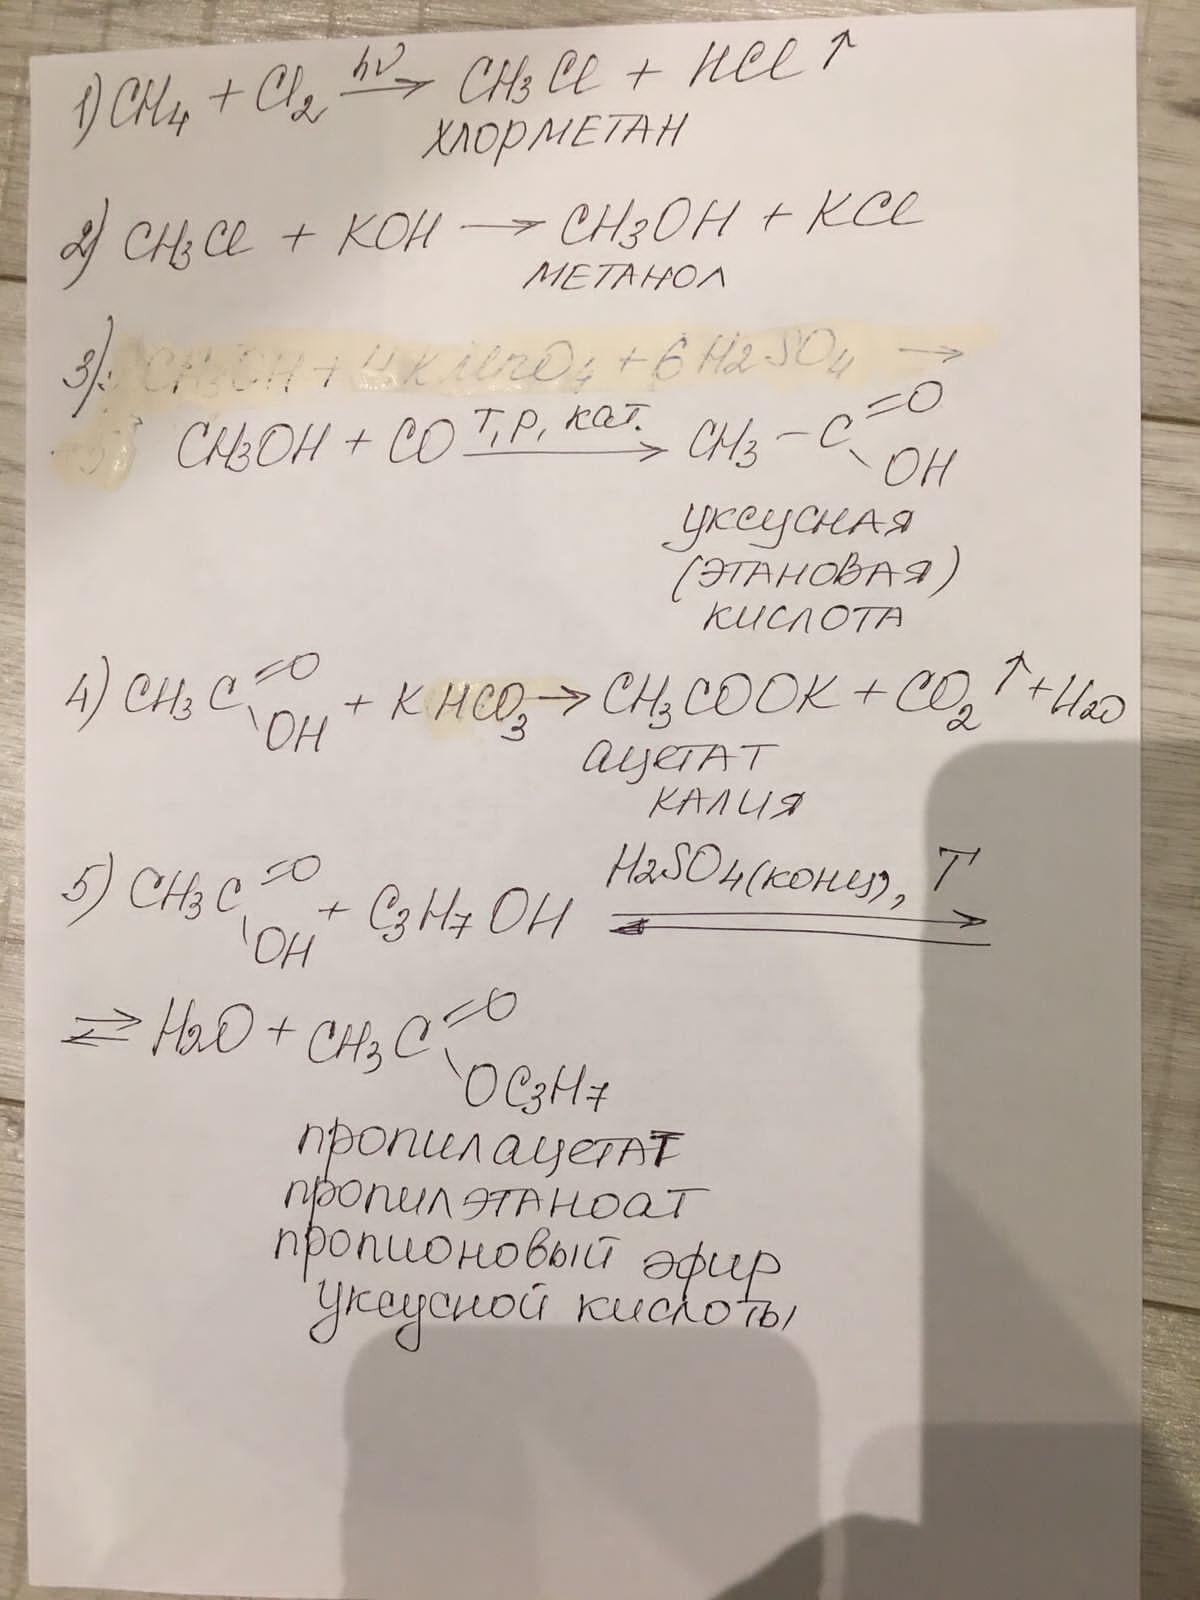 1) CH4 + Cl2 hν → CH3Cl + HCl ↑
ХЛОРМЕТАН
2) CH3Cl + KOH → CH3OH + KCl
МЕТАНОЛ
3) CH3OH + 4KMnO4 + 6H2SO4 →
CH3OH + CO T, p, кат. → CH3 – C =O \OH
уксусная
(этановая)
кислота
4) CH3C =O \OH + KHCO3 → CH3COOK + CO2 ↑ + H2O
ацетат
калия
5) CH3C =O \OH + C3H7OH H2SO4(конц), T ⇄
⇄ H2O + CH3C =O \OC3H7
пропилацетат
пропилэтаноат
пропионовый эфир
уксусной кислоты